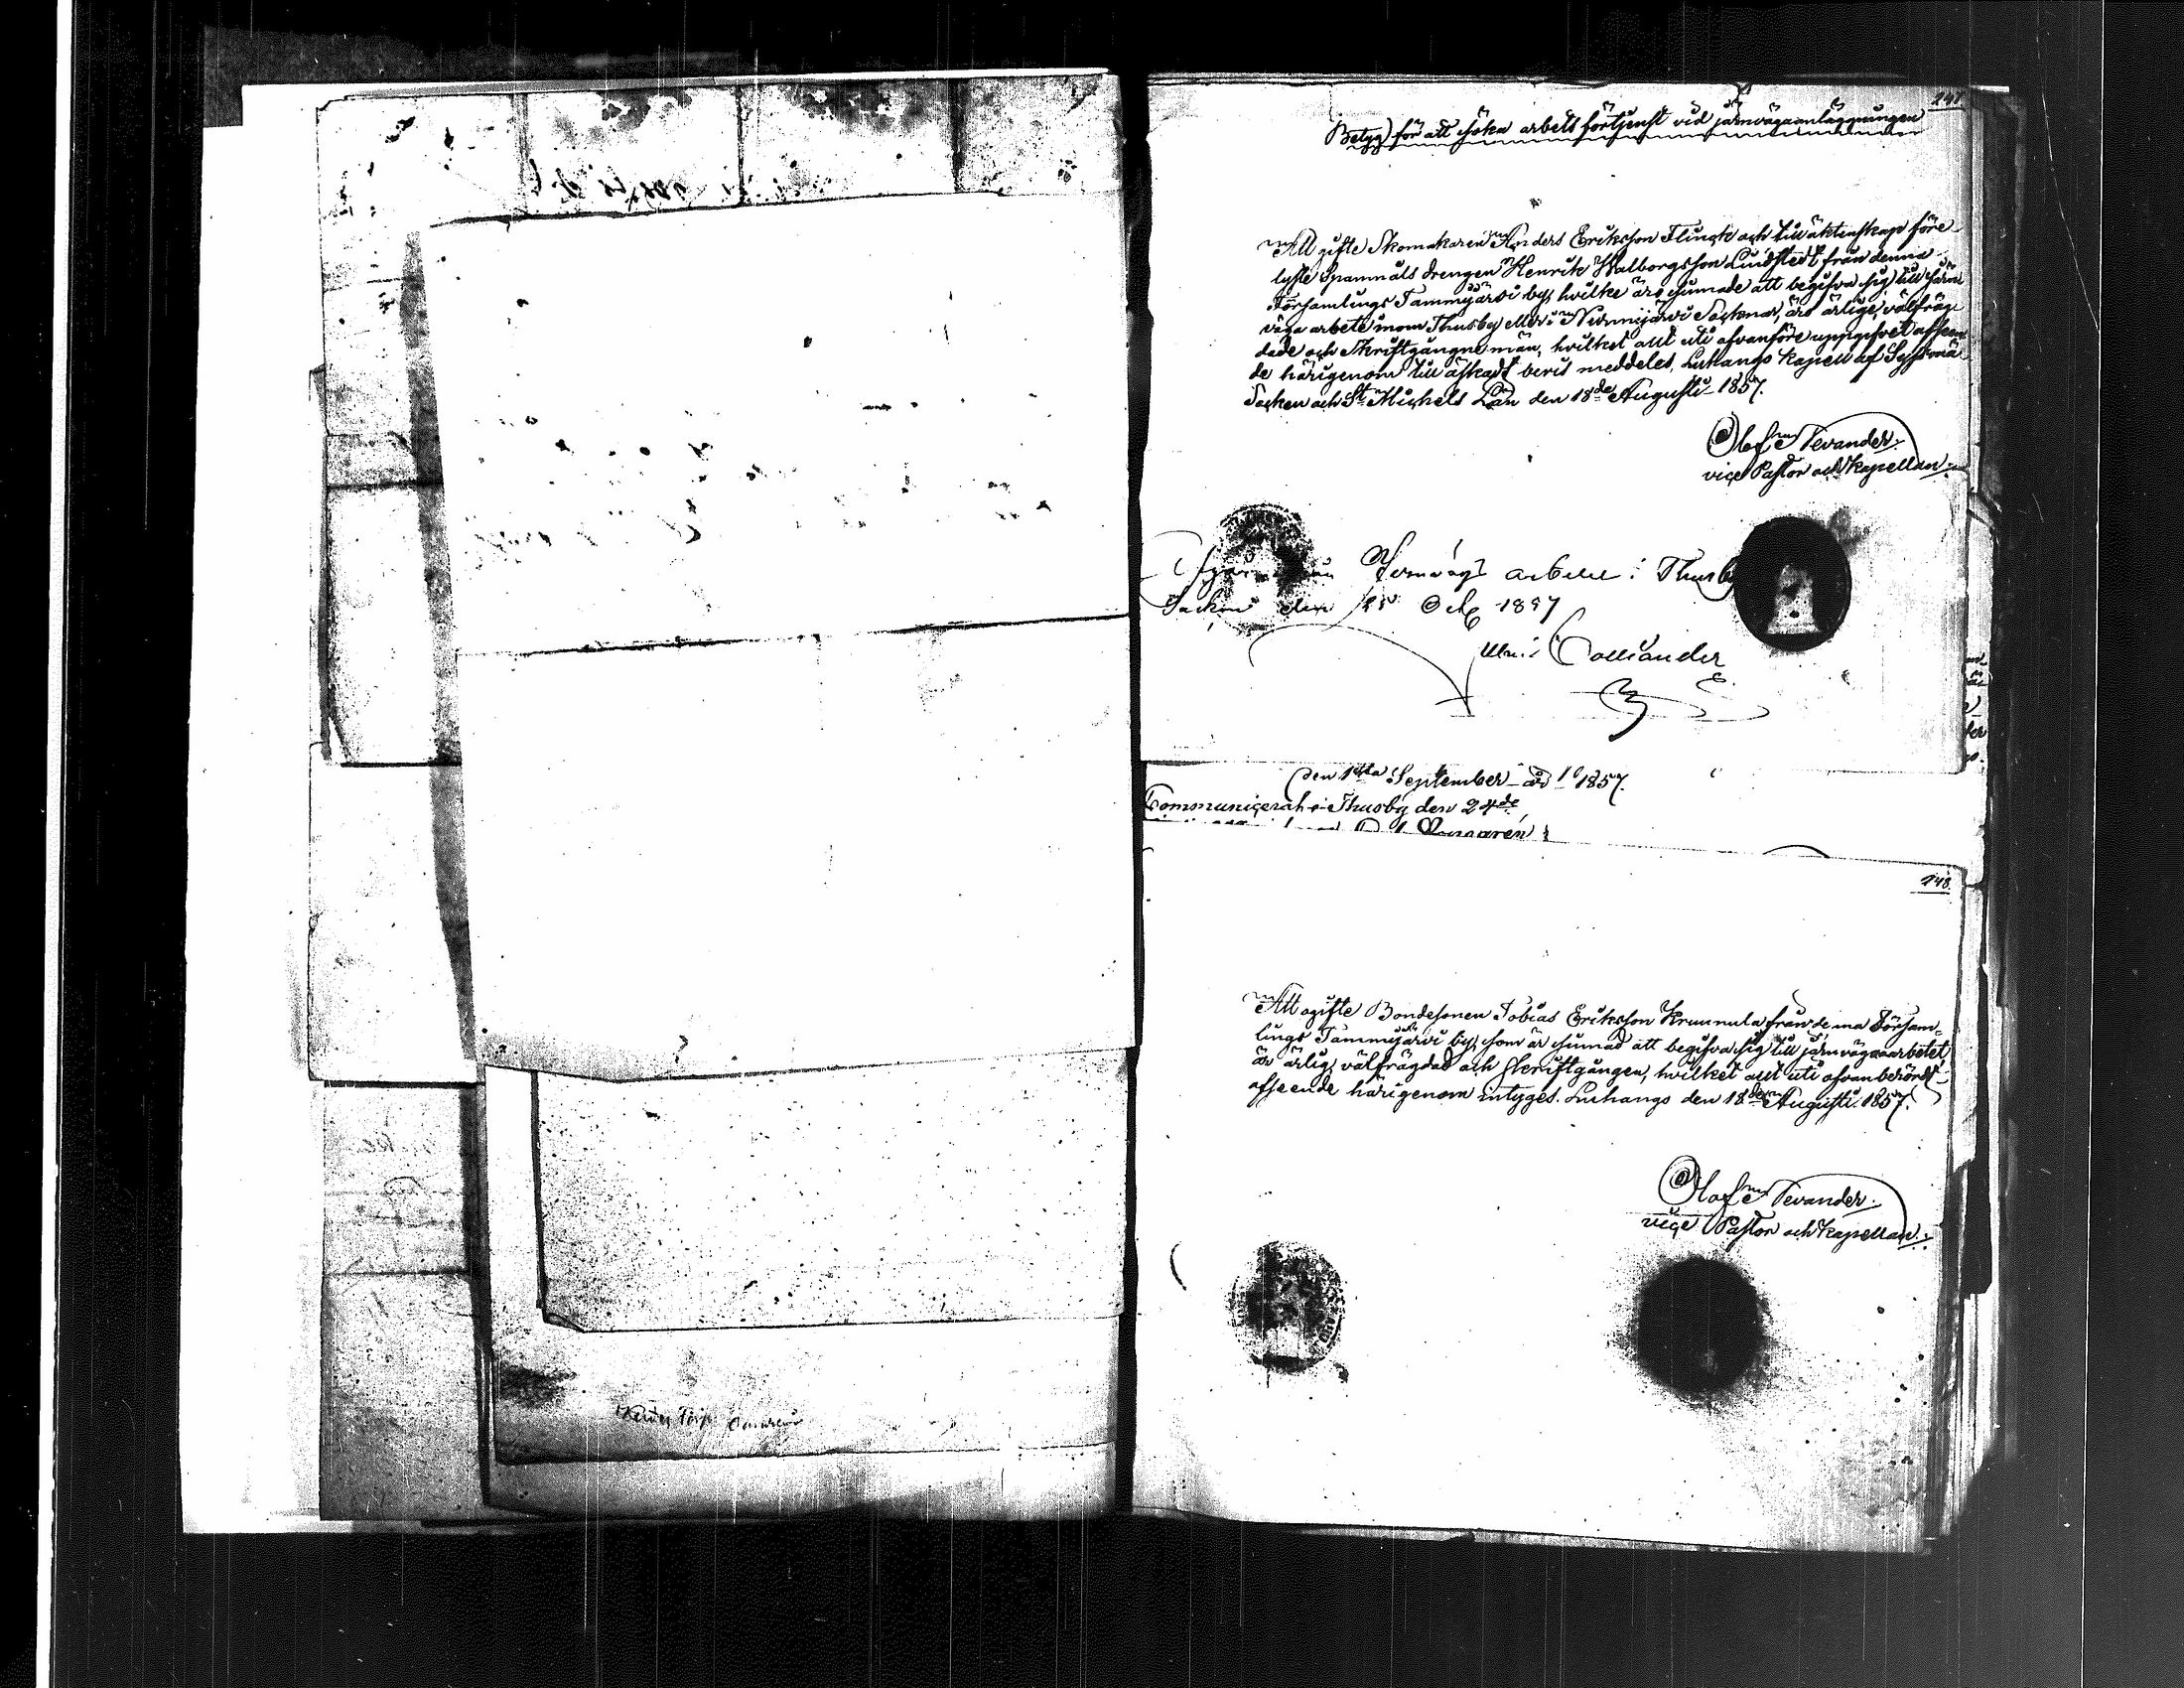 247.
Betyg för att söka arbetsförtjenst vid järnvägsanläggningen
Att gifte Skomakaren Anders Eriksson Flinck och till äktenskap före
lyste Spannmåls drengen Henrik Walborgsson Lindstedt från denna
Församlings Tammijärvi by, hvilke äro sinnade att begifva sig till järn
vägs arbete inom Thusby eller Nurmijärvi Socknar, äro ärlige, välfräg
dade och skriftgångne män, hvilket allt uti ofvanföre uppgifvet afseen
de härigenom till äskadt bevis meddeles, Luhango kapell af Sysmä
Socken och St. Michels Län den 18de Augusti 1857.
Olof Levander.
vice Pastor och kapellan.
från Jernvägs arbetet i Thusby
Socken den Oct 1857
Callander
den September 1857.
Communicerat i Thusby den 24de
248.
Att ogifte Bondesonen Tobias Eriksson Krunnula från denna Försam
lings Tammijärvi by, som är sinnad att begifva sig till järnvägsarbetet
är ärlig, välfrägdad och skriftgången, hvilket allt uti ofvanberörde
afseende härigenom intyges. Luhango den 18de Augusti 1857.
Olof Levander.
vice Pastor och kapellan.